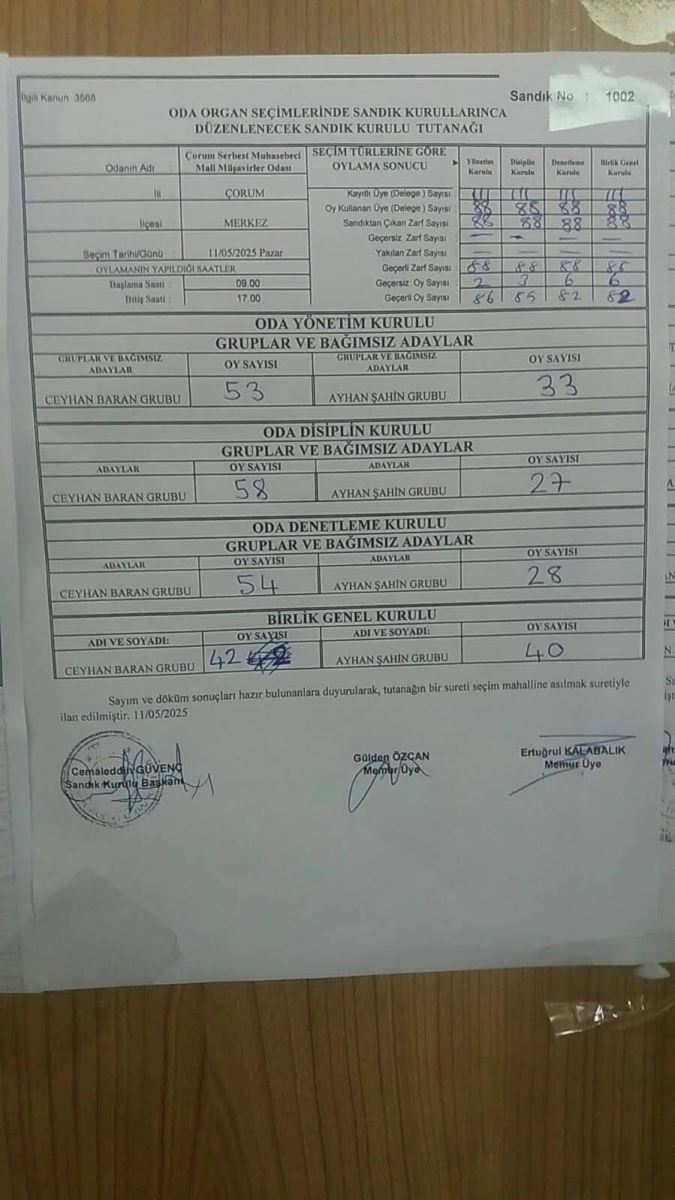 İlgili Kanun. 3568
Sandık No : 1002
ODA ORGAN SEÇİMLERİNDE SANDIK KURULLARINCA
DÜZENLENECEK SANDIK KURULU TUTANAĞI
Odanın Adı Çorum Serbest Muhasebeci Mali Müşavirler Odası
İli ÇORUM
İlçesi MERKEZ
Seçim Tarihi/Günü 11/05/2025 Pazar
OYLAMANIN YAPILDIĞI SAATLER
Başlama Saati : 09.00
Bitiş Saati : 17.00
SEÇİM TÜRLERİNE GÖRE OYLAMA SONUCU Yönetim Kurulu Disiplin Kurulu Denetleme Kurulu Birlik Genel Kurulu
Kayıtlı Üye (Delege) Sayısı : 111 111 111 111
Oy Kullanan Üye (Delege) Sayısı : 88 88 88 88
Sandıktan Çıkan Zarf Sayısı : 88 88 88 88
Geçersiz Zarf Sayısı : — — — —
Yakılan Zarf Sayısı : — — — —
Geçerli Zarf Sayısı : 88 88 88 88
Geçersiz Oy Sayısı : 2 3 6 6
Geçerli Oy Sayısı : 86 85 82 82
ODA YÖNETİM KURULU
GRUPLAR VE BAĞIMSIZ ADAYLAR
GRUPLAR VE BAĞIMSIZ ADAYLAR OY SAYISI GRUPLAR VE BAĞIMSIZ ADAYLAR OY SAYISI
CEYHAN BARAN GRUBU 53 AYHAN ŞAHİN GRUBU 33
ODA DİSİPLİN KURULU
GRUPLAR VE BAĞIMSIZ ADAYLAR
ADAYLAR OY SAYISI ADAYLAR OY SAYISI
CEYHAN BARAN GRUBU 58 AYHAN ŞAHİN GRUBU 27
ODA DENETLEME KURULU
GRUPLAR VE BAĞIMSIZ ADAYLAR
ADAYLAR OY SAYISI ADAYLAR OY SAYISI
CEYHAN BARAN GRUBU 54 AYHAN ŞAHİN GRUBU 28
BİRLİK GENEL KURULU
ADI VE SOYADI: OY SAYISI ADI VE SOYADI: OY SAYISI
CEYHAN BARAN GRUBU 42 AYHAN ŞAHİN GRUBU 40
Sayım ve döküm sonuçları hazır bulunanlara duyurularak, tutanağın bir sureti seçim mahalline asılmak suretiyle
ilan edilmiştir. 11/05/2025
Cemaleddin GÜVENÇ
Sandık Kurulu Başkanı
Gülden ÖZCAN
Memur Üye
Ertuğrul KALABALIK
Memur Üye